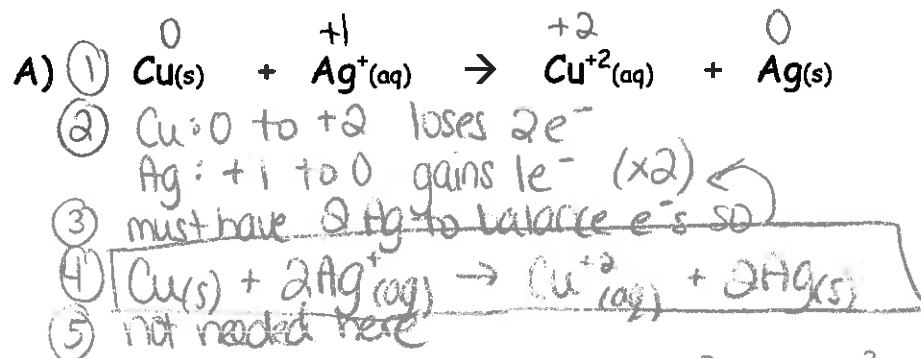 0 +1 +2 0
A) ① Cu(s) + Ag⁺(aq) → Cu⁺²(aq) + Ag(s)
② Cu: 0 to +2 loses 2e⁻
Ag: +1 to 0 gains 1e⁻ (x2)
③ must have 2 Ag to balance e⁻'s so
④ Cu(s) + 2Ag⁺(aq) → Cu⁺²(aq) + 2Ag(s)
⑤ not needed here